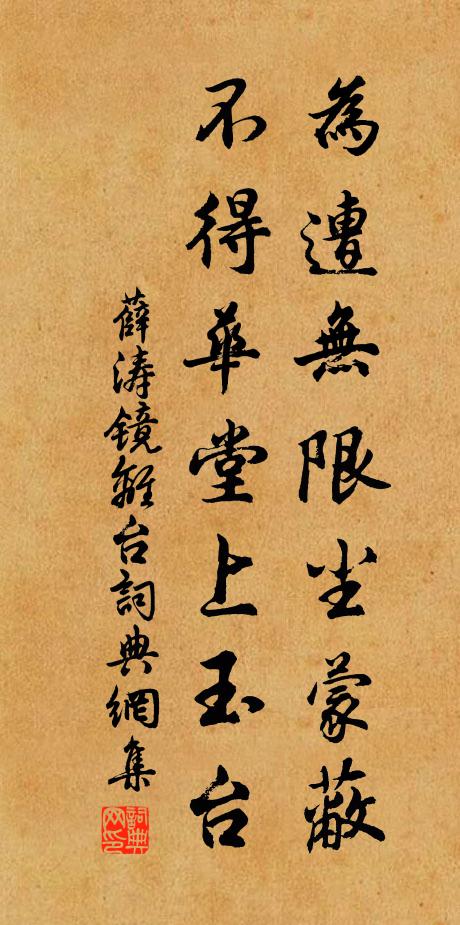 為遭無限尘蒙蔽
不得華堂上玉台
薛涛鏡離台詞典網集
詞典
网印